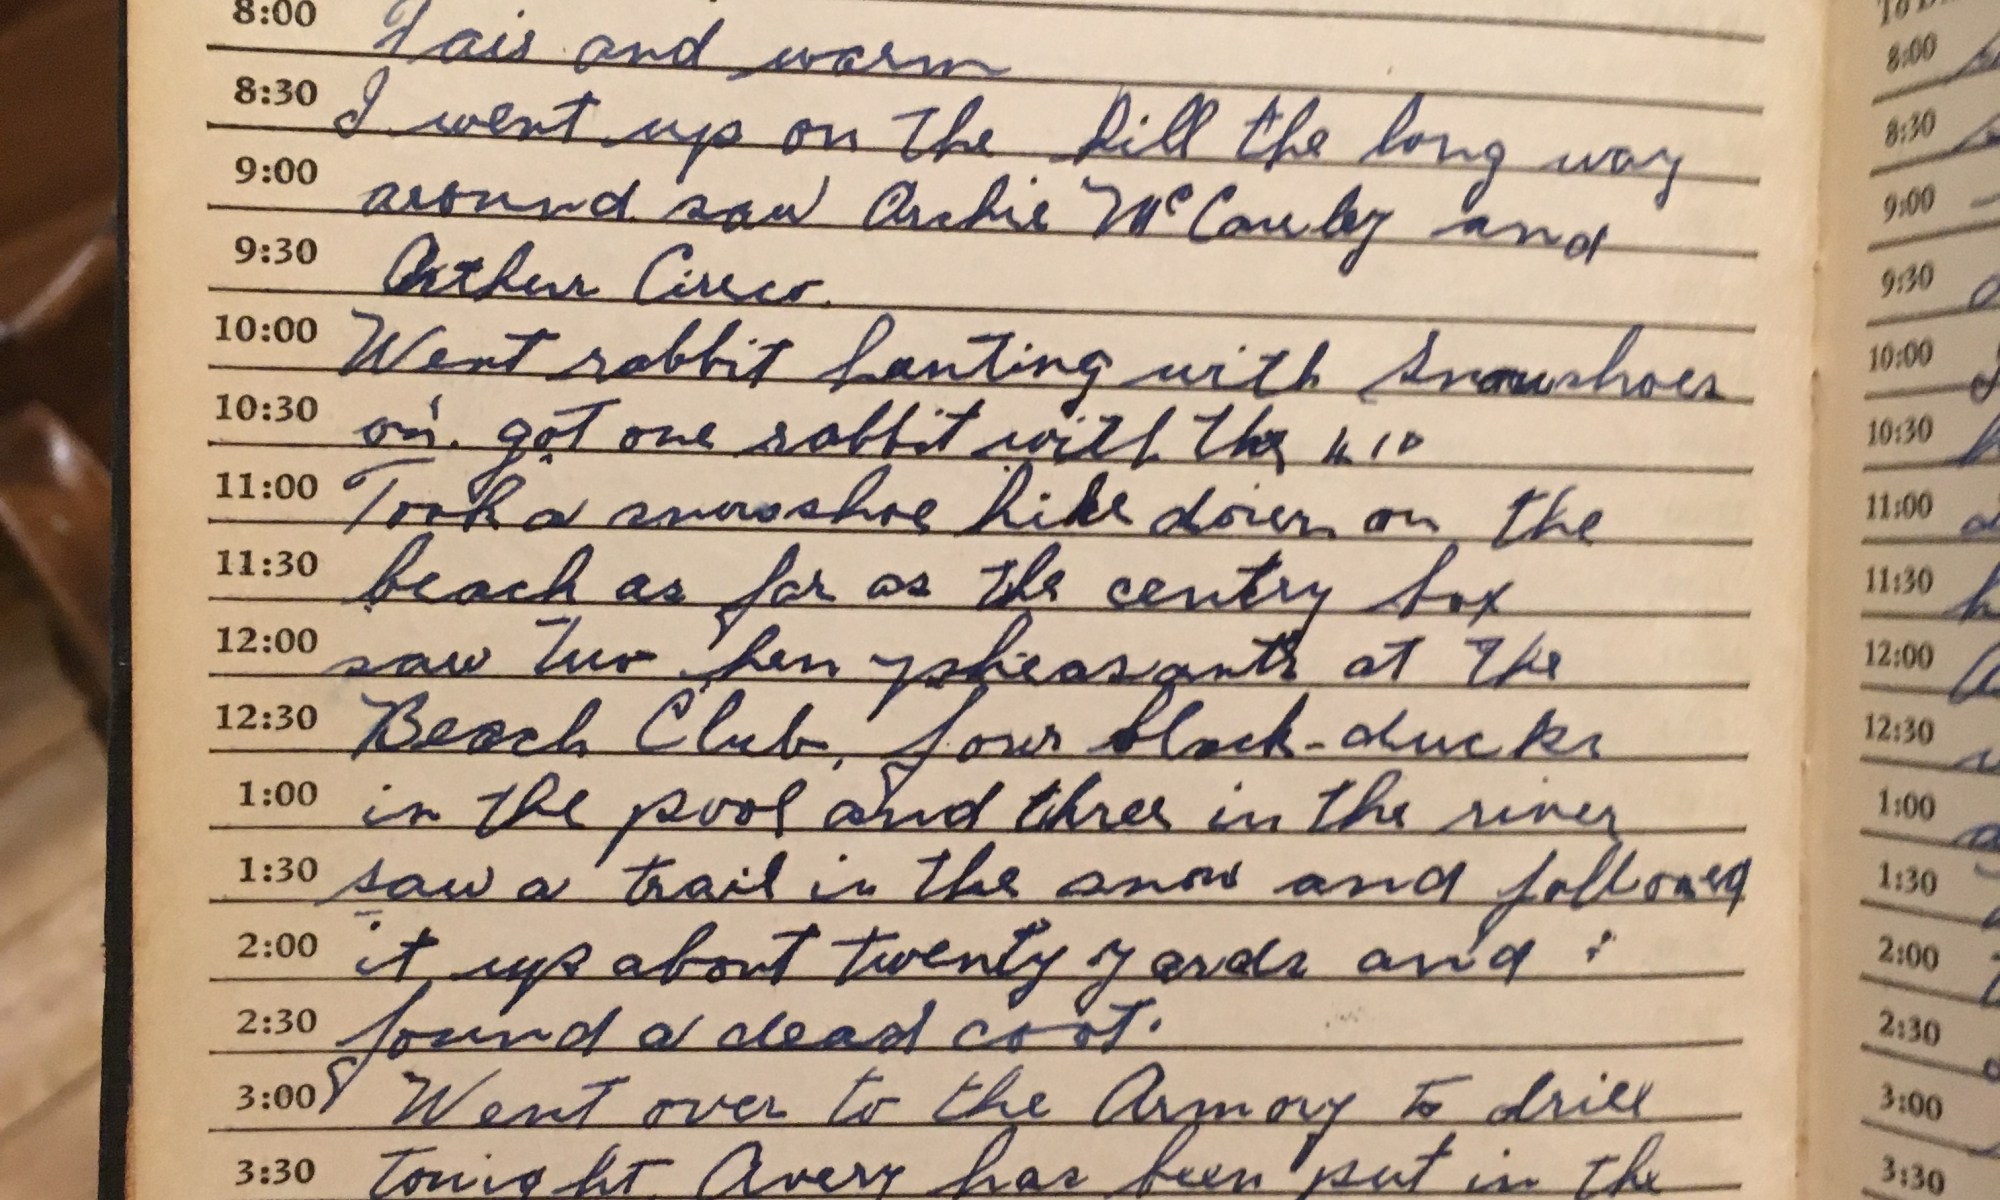 8:00 Fair and warm
8:30 I went up on the hill the long way
9:00 around saw Archie McCauley and
9:30 Arthur Cireco.
10:00 Went rabbit hunting with snowshoes
10:30 on. got one rabbit with the
11:00 Took a snowshoe hike down on the
11:30 beach as far as the centry box
12:00 saw two hen pheasants at the
12:30 Beach Club, four black-ducks
1:00 in the pool and three in the river
1:30 saw a trail in the snow and followed
2:00 it up about twenty yards and
2:30 found a dead coot.
3:00 Went over to the Armory to drill
3:30 tonight. Avery has been put in the
8:00
8:30
9:00
9:30
10:00
10:30
11:00
11:30
12:00
12:30
1:00
1:30
2:00
2:30
3:00
3:30